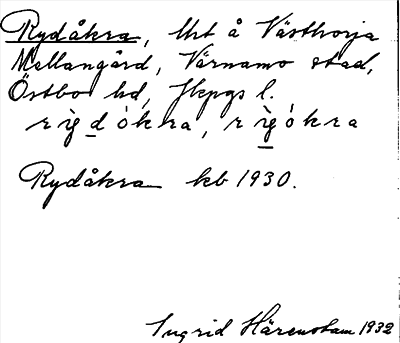 Rydåkra, Urt å Västhorja
Mellangård, Värnamo stad,
Östbo hd, Jkpgs l.
rìg̲d ókra, rìg̲ókra
Rydåkra kb 1930.
Ingrid Härenstam 1932